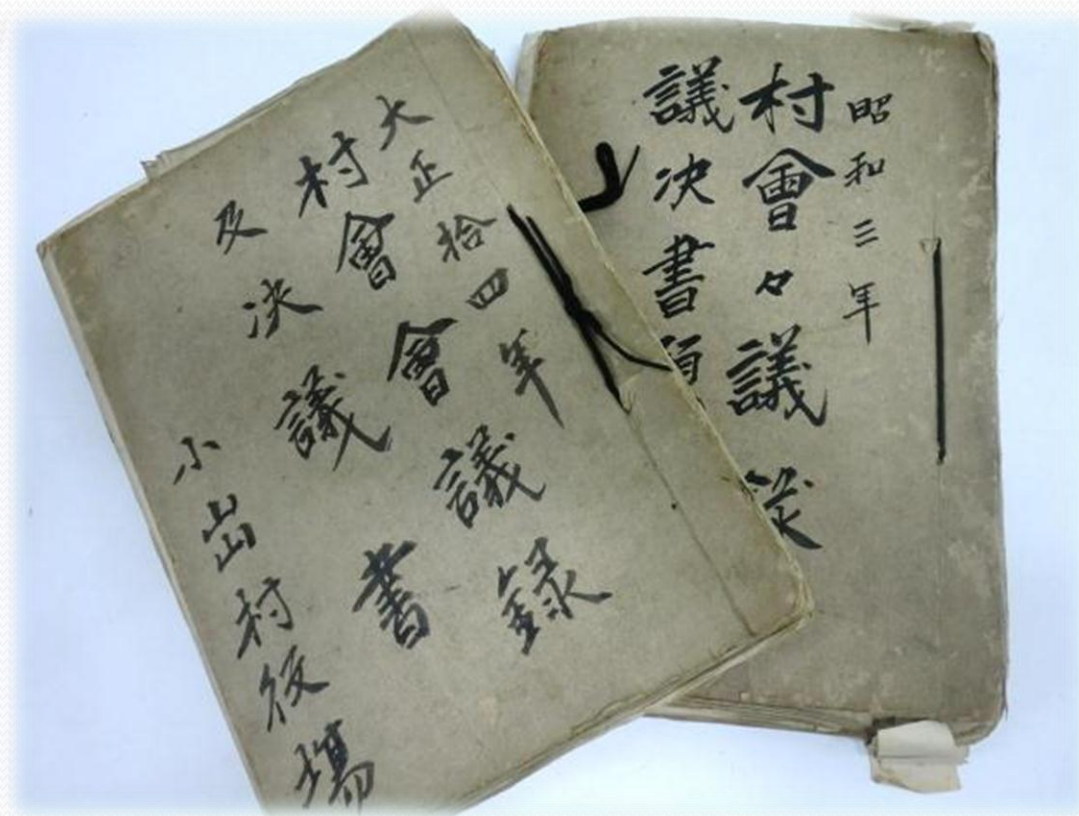 大正拾四年
村會會議録
及決議書
小出村役場
昭和三年
村會々議録
議决書